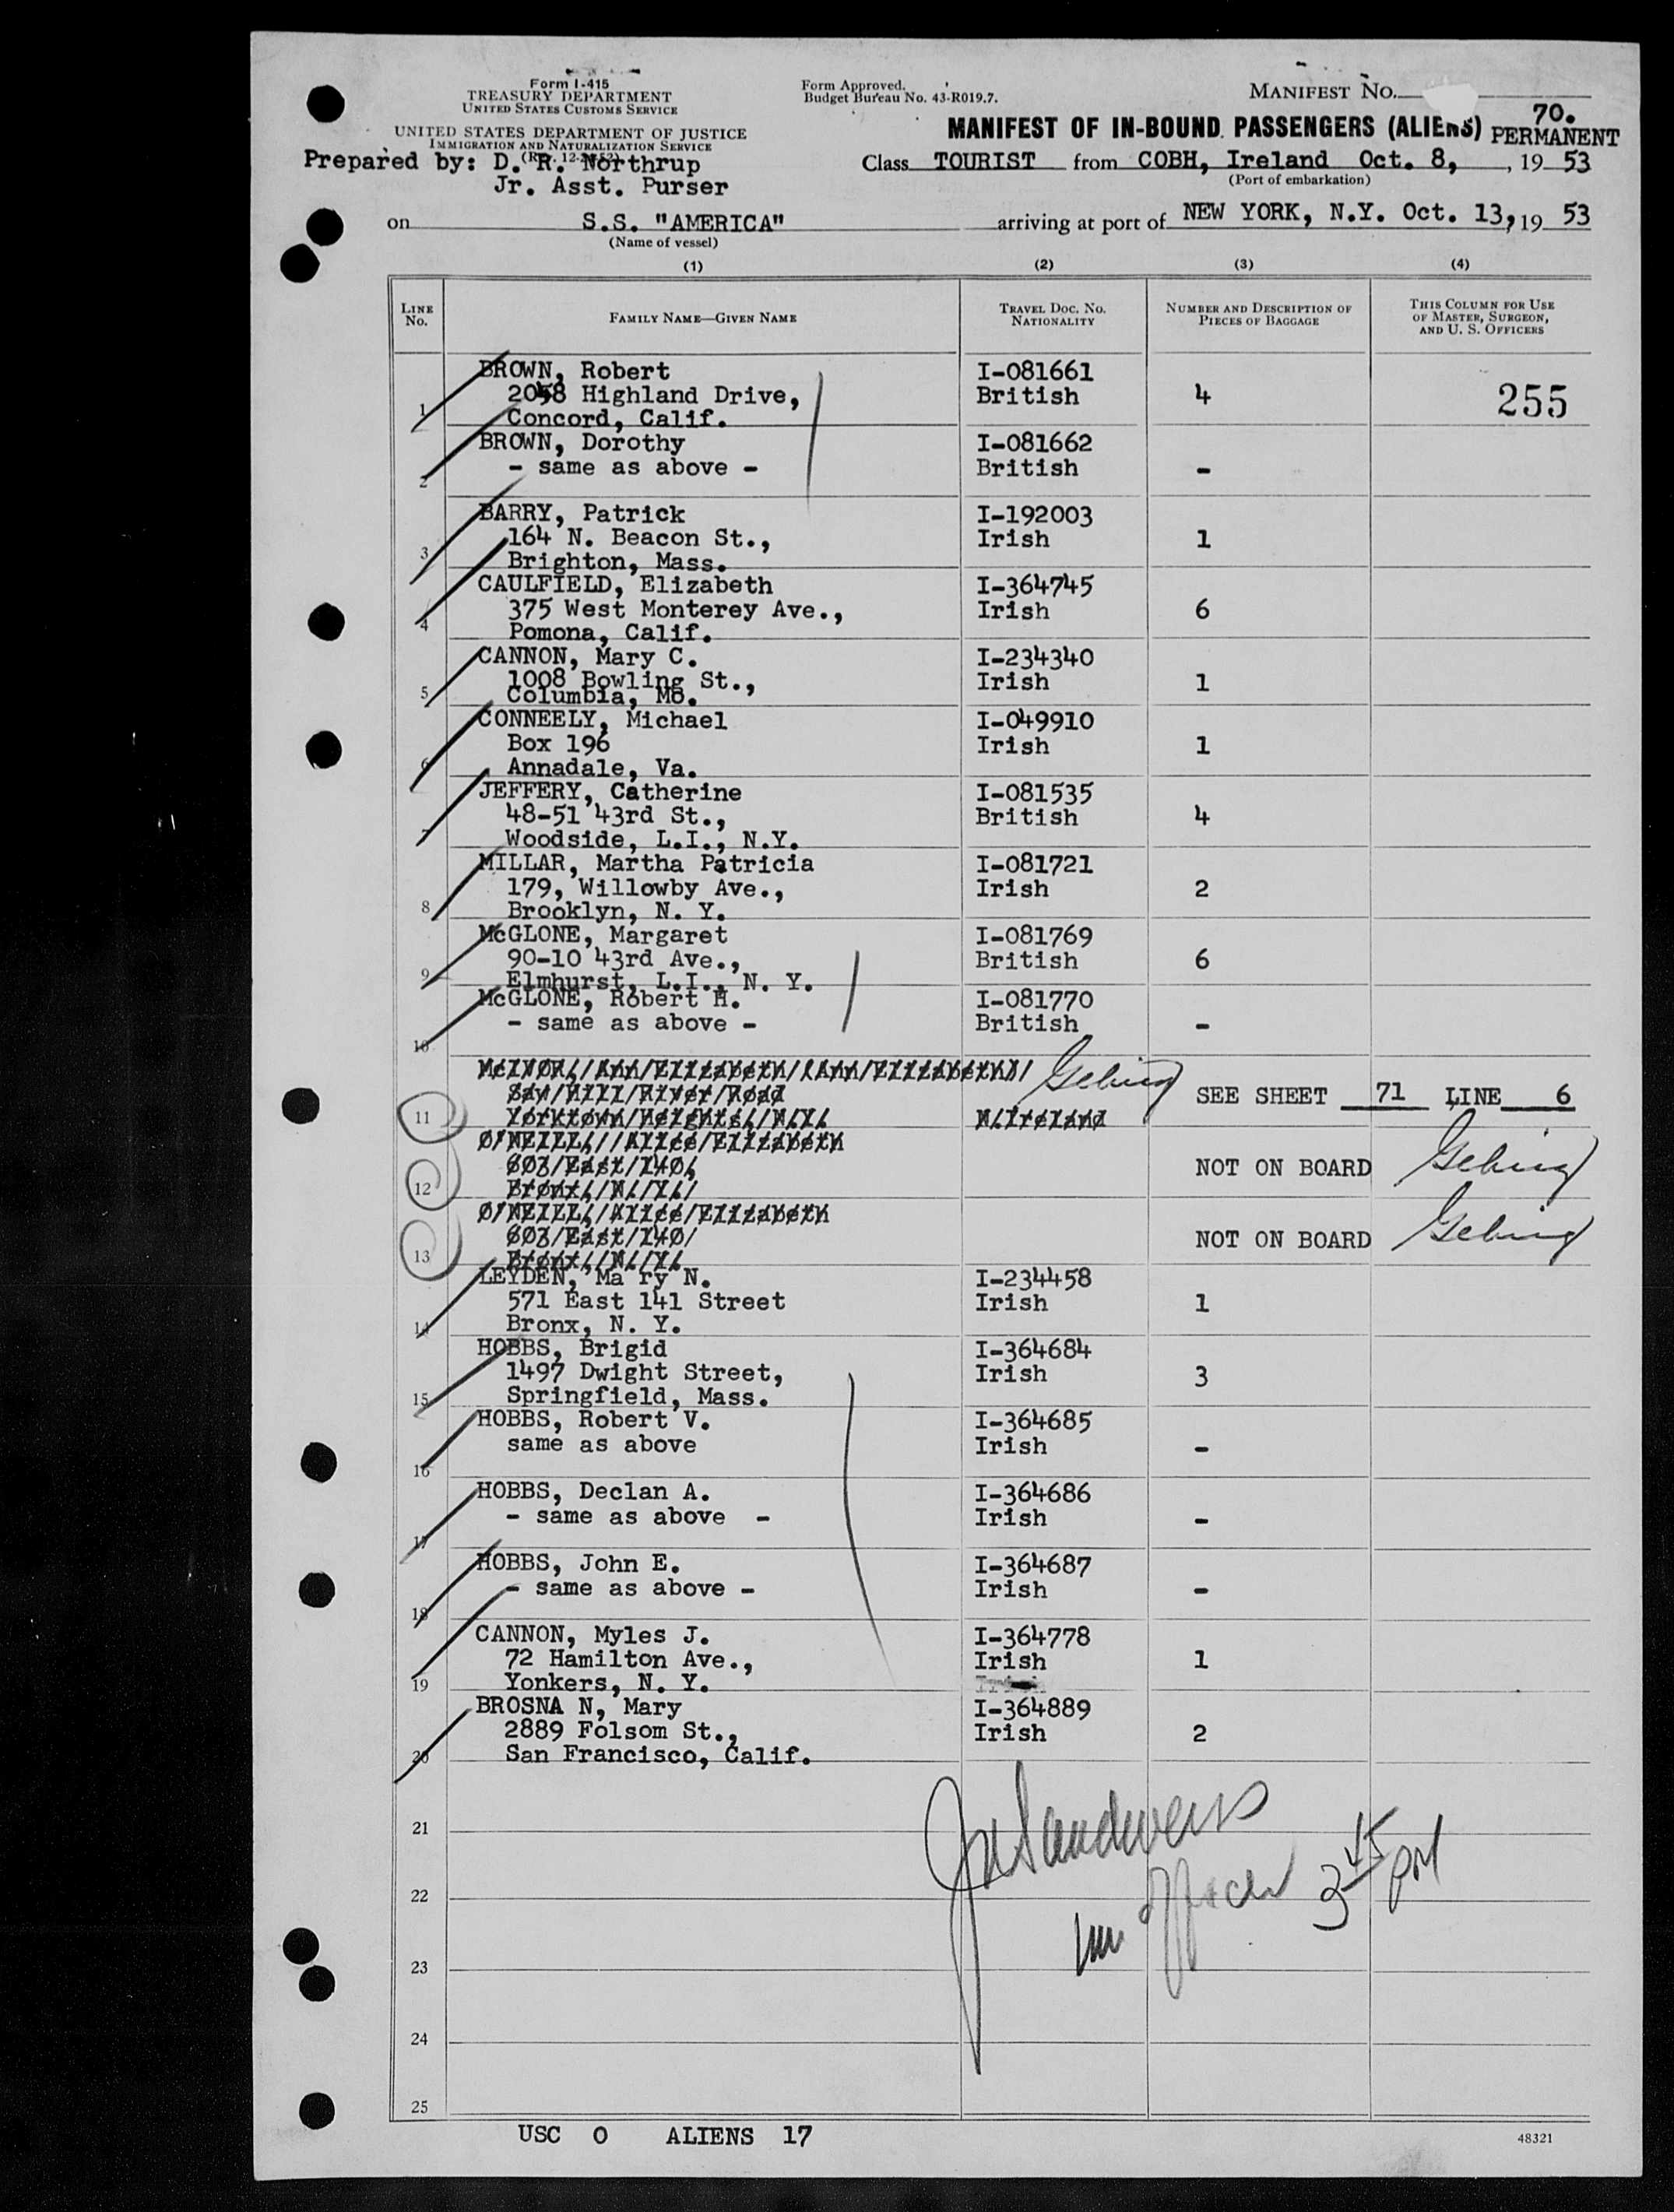 Form I-415
TREASURY DEPARTMENT
UNITED STATES CUSTOMS SERVICE
UNITED STATES DEPARTMENT OF JUSTICE
IMMIGRATION AND NATURALIZATION SERVICE
Prepared by: D. R. Northrup
Jr. Asst. Purser
Form Approved.
Budget Bureau No. 43-R019.7.
MANIFEST NO.
70.
MANIFEST OF IN-BOUND PASSENGERS (ALIENS) PERMANENT
Class TOURIST from COBH, Ireland Oct. 8, , 19 53
(Port of embarkation)
on S.S. "AMERICA" arriving at port of NEW YORK, N.Y. Oct. 13, 19 53
(Name of vessel)
(1) (2) (3) (4)
LINE NO. FAMILY NAME—GIVEN NAME TRAVEL DOC. NO. NATIONALITY NUMBER AND DESCRIPTION OF PIECES OF BAGGAGE THIS COLUMN FOR USE OF MASTER, SURGEON, AND U. S. OFFICERS
BROWN, Robert I-081661
2058 Highland Drive, British 4 255
1 Concord, Calif.
BROWN, Dorothy I-081662
- same as above - British -
2
BARRY, Patrick I-192003
164 N. Beacon St., Irish 1
3 Brighton, Mass.
CAULFIELD, Elizabeth I-364745
375 West Monterey Ave., Irish 6
4 Pomona, Calif.
CANNON, Mary C. I-234340
1008 Bowling St., Irish 1
5 Columbia, Mo.
CONNEELY, Michael I-049910
Box 196 Irish 1
6 Annadale, Va.
JEFFERY, Catherine I-081535
48-51 43rd St., British 4
7 Woodside, L.I., N.Y.
MILLAR, Martha Patricia I-081721
179, Willowby Ave., Irish 2
8 Brooklyn, N. Y.
McGLONE, Margaret I-081769
90-10 43rd Ave., British 6
9 Elmhurst, L.I., N. Y.
McGLONE, Robert H. I-081770
- same as above - British -
10
McIVOR, Ann Elizabeth (Ann Elizabeth)
Saw Mill River Road SEE SHEET 71 LINE 6
11 Yorktown Heights, N.Y. N.Ireland
O'NEILL, Alice Elizabeth
803 East 140, NOT ON BOARD
12 Bronx, N. Y.
O'NEILL, Alice Elizabeth
803 East 140 NOT ON BOARD
13 Bronx, N. Y.
LEYDEN, Ma ry N. I-234458
571 East 141 Street Irish 1
14 Bronx, N. Y.
HOBBS, Brigid I-364684
1497 Dwight Street, Irish 3
15 Springfield, Mass.
HOBBS, Robert V. I-364685
same as above Irish -
16
HOBBS, Declan A. I-364686
- same as above - Irish -
17
HOBBS, John E. I-364687
- same as above - Irish -
18
CANNON, Myles J. I-364778
72 Hamilton Ave., Irish 1
19 Yonkers, N. Y.
BROSNA N, Mary I-364889
2889 Folsom St., Irish 2
20 San Francisco, Calif.
21
22 Imm Officer 3 45 PM
23
24
25
USC 0 ALIENS 17
48321